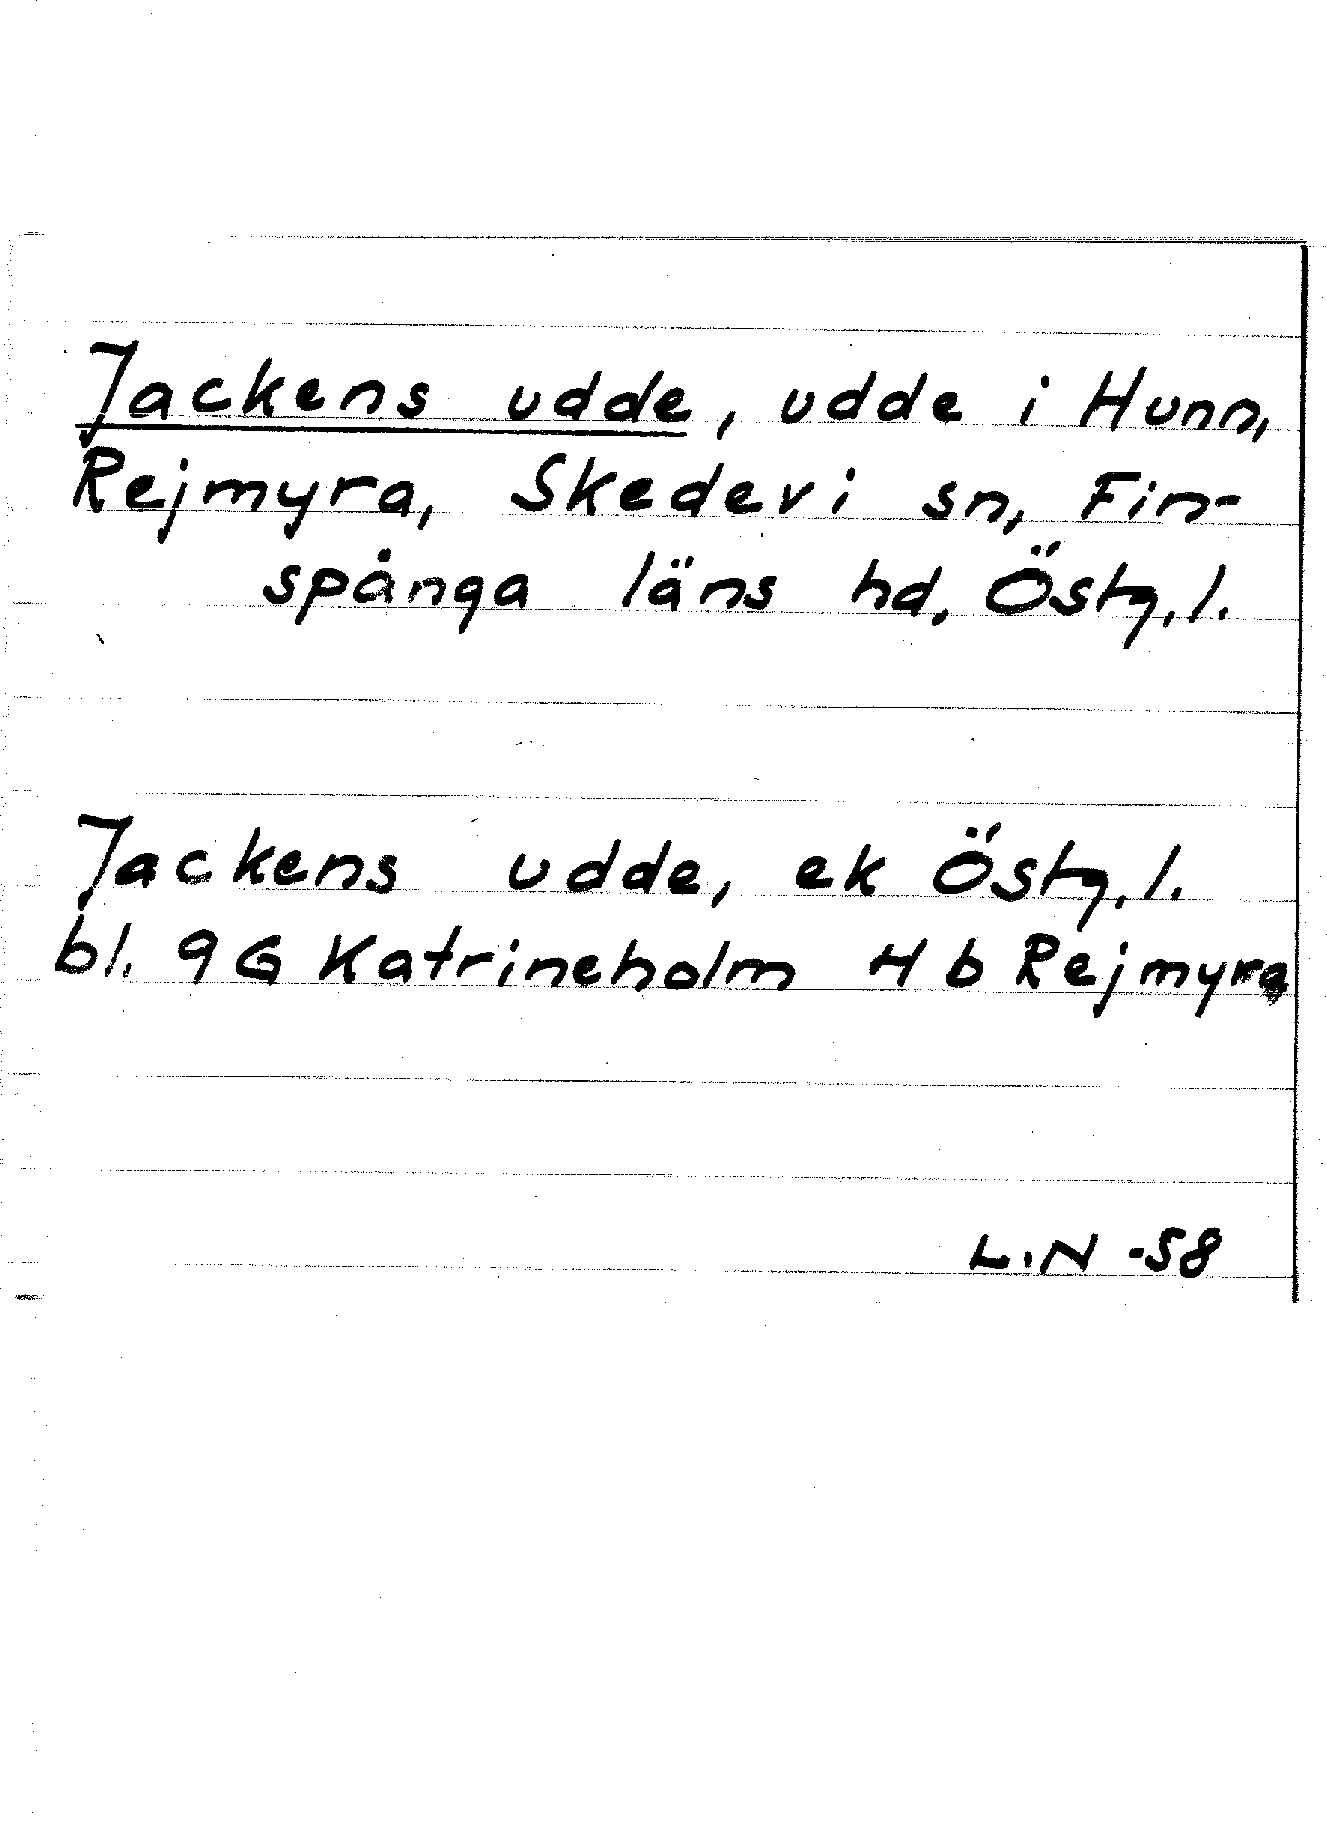 Jackens udde, udde i Hunn,
Rejmyra, Skedevi sn, Fin-
spånga läns hd, Östg. l.
Jackens udde, ek Östg. l.
bl. 9G Katrineholm Hb Rejmyra
L.N -58